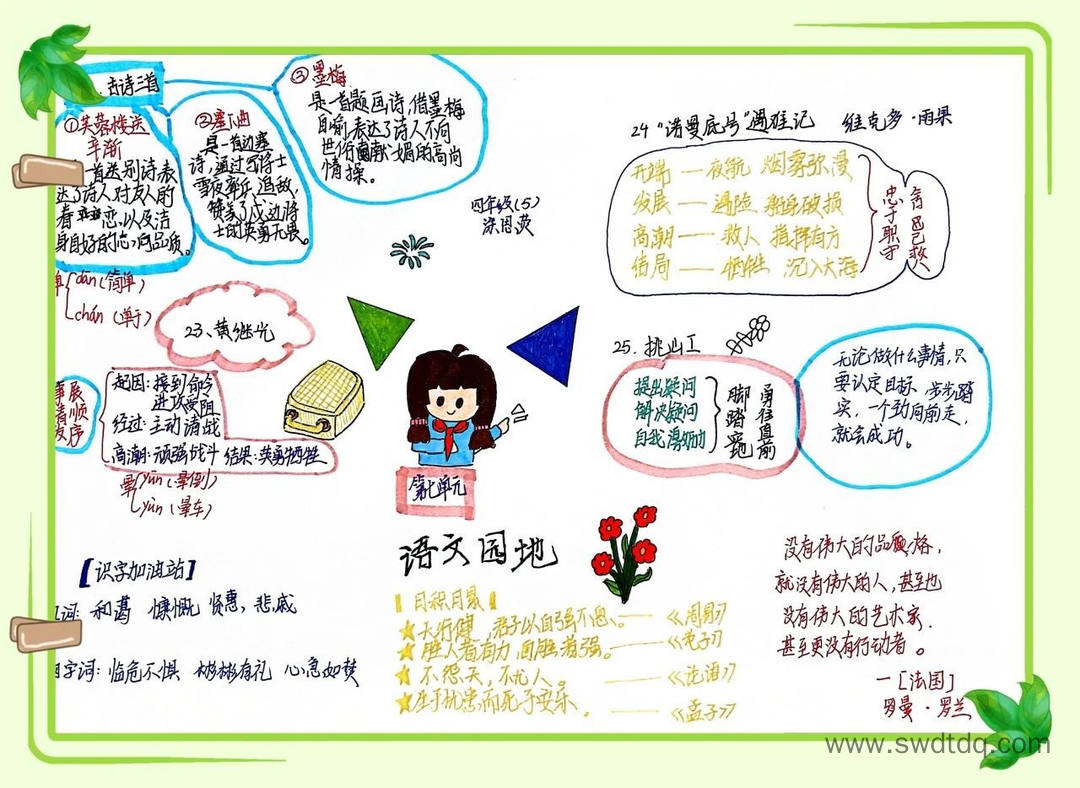 古诗三首
①芙蓉楼送
辛渐
首送别诗,表
达了诗人对友人的
眷恋,以及洁
身自好的志向品质。
②塞下曲
是一首边塞
诗,通过写将士
雪夜弃兵追敌,
赞美了戍边将
士的英勇无畏。
③墨梅
是一首题画诗,借墨梅
自喻,表达了诗人不向
世俗献媚的高尚
情操。
四年级(5)
单
dān(简单)
chán(单于)
23、黄继光
事展
情顺
发序
起因:接到命令
进攻受阻
经过:主动请战
高潮:顽强战斗 结果:英勇牺牲
晕
yūn(晕倒)
yùn(晕车)
第七单元
24 "诺曼底号"遇难记 维克多·雨果
开端——夜航 烟雾弥漫
发展——遇险 亲身破损
高潮——救人 指挥有方
结局——牺牲 沉入大海
忠于职守
舍己救人
25. 挑山工
提出疑问
解决疑问
自我激励
脚踏实地
勇往直前
无论做什么事情,只
要认定目标,步步踏
实,一个劲向前走,
就会成功。
语文园地
[识字加油站]
词: 和蔼 慷慨 贤惠, 悲戚
四字词: 临危不惧 彬彬有礼 心急如焚
日积月累
★天行健,君子以自强不息。——《周易》
★胜人者有力,自胜者强。——《老子》
★不怨天,不尤人。——《论语》
★生于忧患,而死于安乐。——《孟子》
没有伟大的品格,
就没有伟大的人,甚至也
没有伟大的艺术家.
甚至更没有行动者。
—[法国]
罗曼·罗兰
www.swdtdq.com